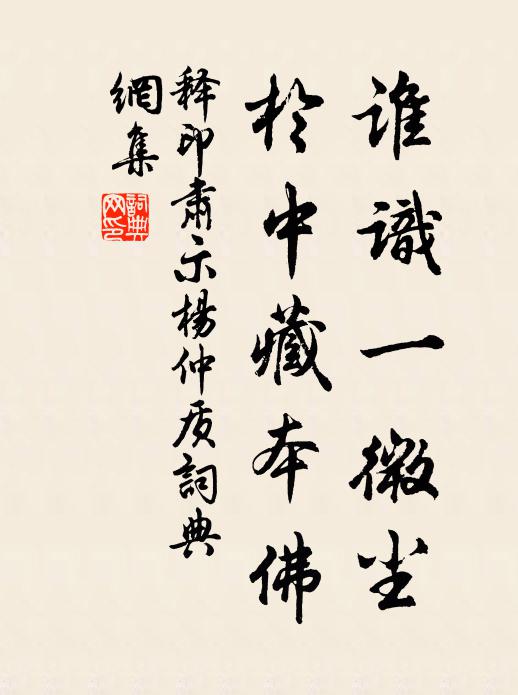 谁識一微尘
於中藏本佛
释印肅示楊仲质詞典
網集
詞典
网印